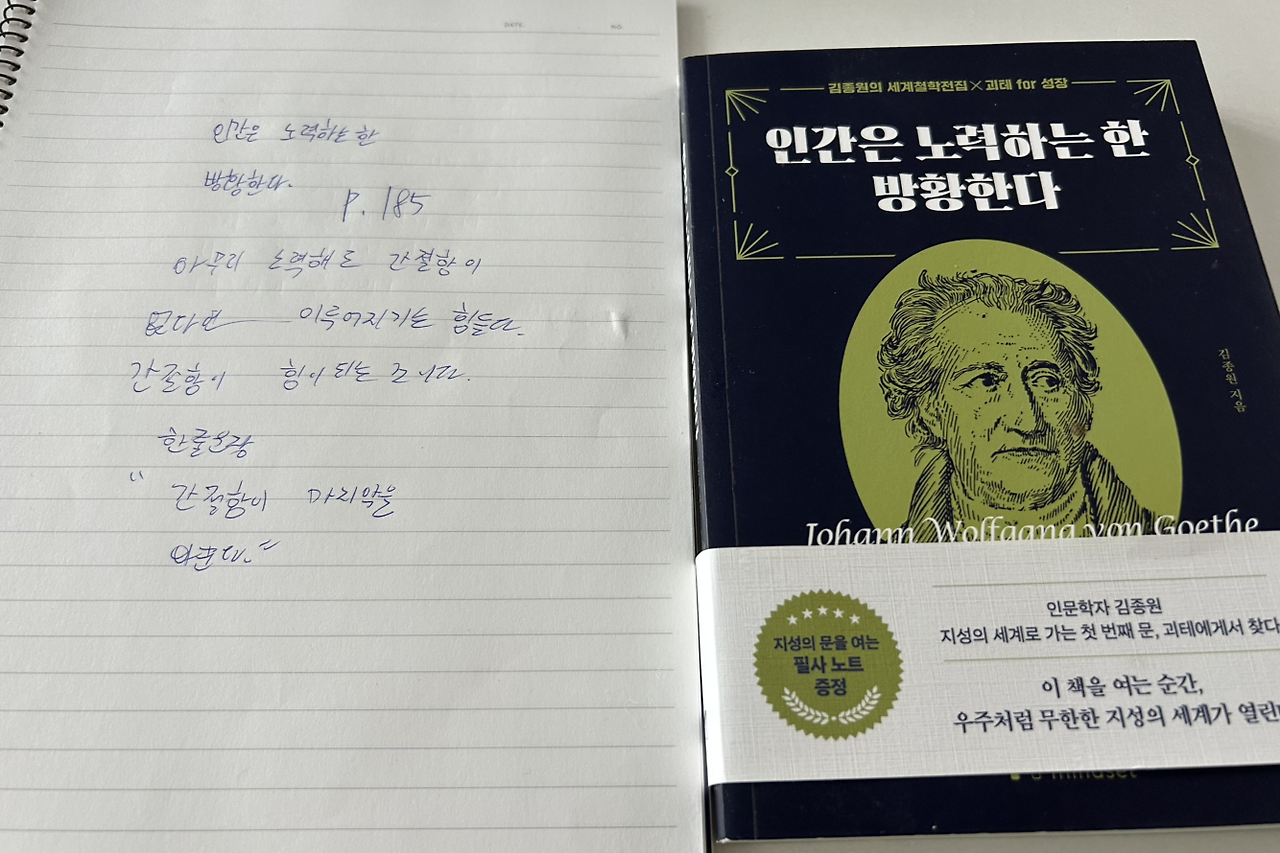 DATE. NO.
인간은 노력하는 한
방황한다.
P. 185
아무리 노력해도 간절함이
없다면 이루어지기는 힘들다.
간절함이 힘이 되는
한줄요망
"간절함이
김종원의 세계철학전집×괴테 for 성장
인간은 노력하는 한
방황한다
김종원 지음
Johann Wolfgang von Goethe
지성의 문을 여는
필사 노트
증정
인문학자 김종원
지성의 세계로 가는 첫 번째 문, 괴테에게서 찾다
이 책을 여는 순간,
우주처럼 무한한 지성의 세계가
mindset